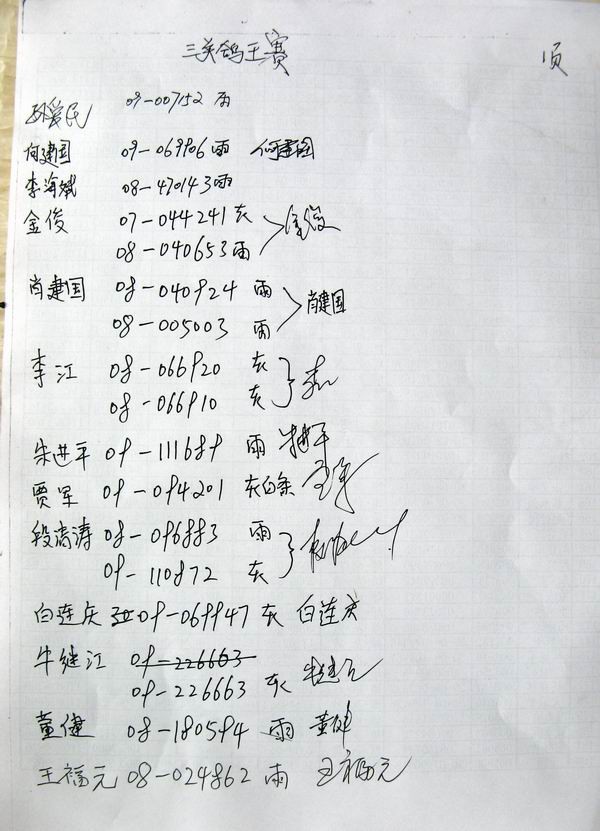 三关鸽王赛
页
孙爱民 09-007152 雨
何建国 09-069906 雨 何建国
李海斌 08-470143 雨
金俊 07-044241 灰
08-040653 雨 金俊
肖建国 08-040924 雨
08-005003 雨 肖建国
李江 08-066920 灰
08-066910 灰
朱进平 09-111689 雨
贾军 09-094201 灰白条
段涛 08-096883 雨
09-110872 灰
白连庆 09-069947 灰 白连庆
牛继江 09-226663
09-226663 灰
董健 08-180594 雨 董健
王福元 08-024862 雨 王福元